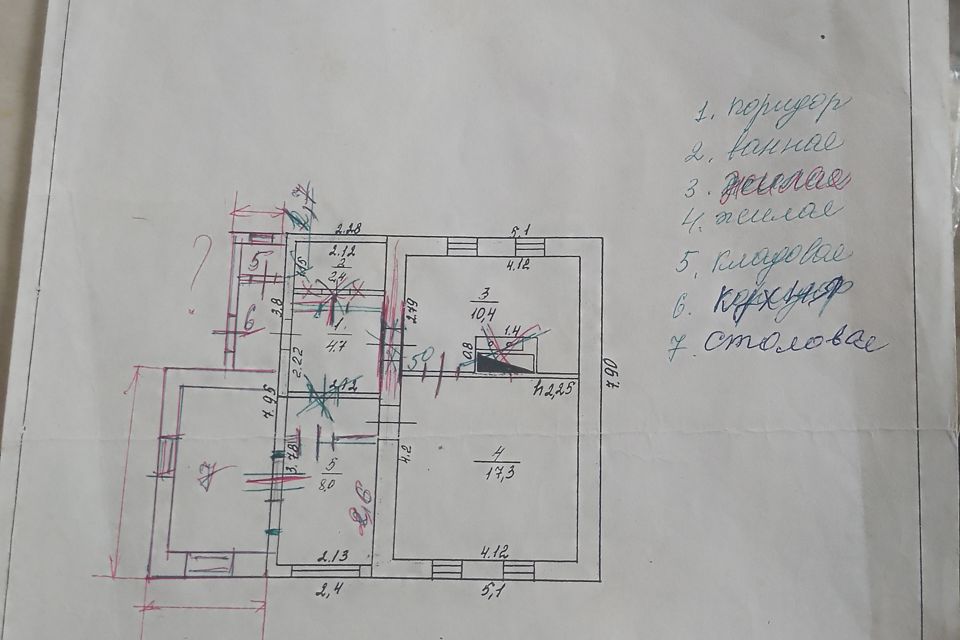 1. коридор
2. ванная
3. жилая
4. жилая
5. кладовая
6. коридор
7. столовая
2.28
5,1
2.12
4.12
5
2
2.4
3.8
?
6
1
4.7
2.79
3
10,4
1.4
0.8
50
2.22
2,12
h2,25
7.90
7.95
3.78
4.2
4
17,3
7
5
8,0
2,6
2.13
4.12
2,4
5,1